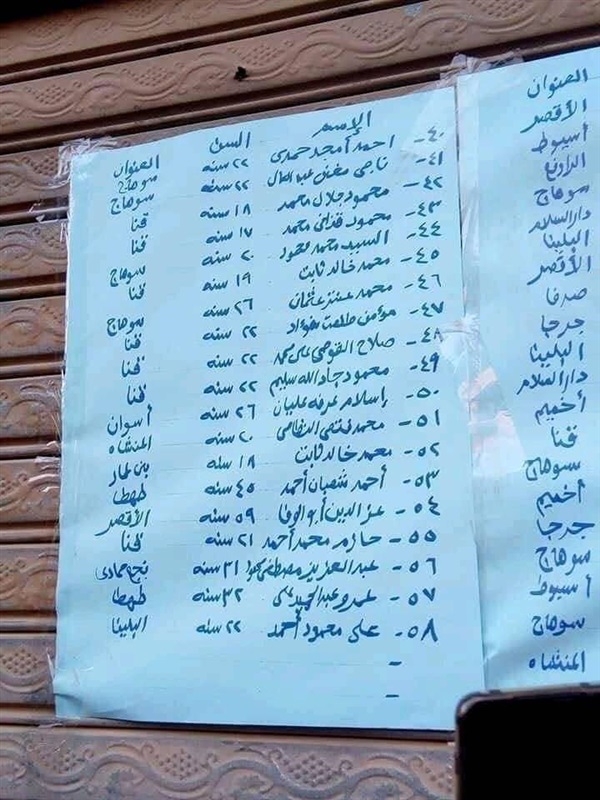 الإسم السن العنوان
٤٠- احمد أمجد حمدى ٢٢ سنه سوهاج
٤١- ناجى عبد العال ٢٢ سنه سوهاج
٤٢- محمود جلال محمد ١٨ سنه قنا
٤٣- محمود محمد ١٧ سنه قنا
٤٤- السيد محمد محمود ٢٠ سنه سوهاج
٤٥- محمد خالد ثابت ١٩ سنه قنا
٤٦- محمد عثمان ٢٦ سنه سوهاج
٤٧- مؤمن طلعت فؤاد ٢٢ سنه قنا
٤٨- صلاح محمد ٢٢ سنه قنا
٤٩- محمود جاد الله سليم ٢٢ سنه قنا
٥٠- إسلام عرفه عليان ٢٦ سنه أسوان
٥١- محمد فتحى ٢٠ سنه المنشاه
٥٢- محمد خالد ثابت ١٨ سنه
٥٣- أحمد شعبان أحمد ٤٥ سنه طهطا
٥٤- عز الدين أبو الوفا ٥٩ سنه الأقصر
٥٥- حازم محمد أحمد ٢١ سنه قنا
٥٦- عبد العزيز مصطفى ٣١ سنه نجع حمادى
٥٧- عمرو عبد الحميد ٣٢ سنه طهطا
٥٨- على محمود أحمد ٢٢ سنه البلينا
-
-
العنوان
الأقصر
أسيوط
سوهاج
دار السلام
البلينا
الأقصر
صدفا
جرجا
البلينا
دار السلام
أخميم
قنا
سوهاج
أخميم
جرجا
سوهاج
أسيوط
سوهاج
المنشاه